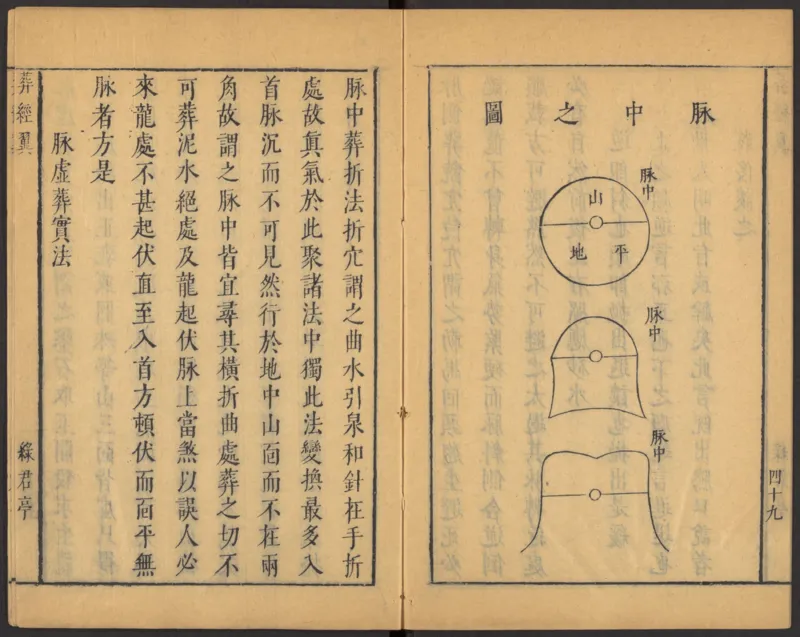 脉中之圖
脉中
山
平
地
脉中
脉中
四十九
脉中葬折法折穴謂之曲水引泉和針在手折
處故真氣於此聚諸法中獨此法變換最多入
首脉沉而不可見然行於地中山靣而不在兩
角故謂之脉中皆宜尋其橫折曲處葬之切不
可葬泥水絕處及龍起伏脉上當煞以誤人必
來龍處不甚起伏直至入首方頓伏而靣平無
脉者方是
脉虛葬實法
葬經翼
綠君亭